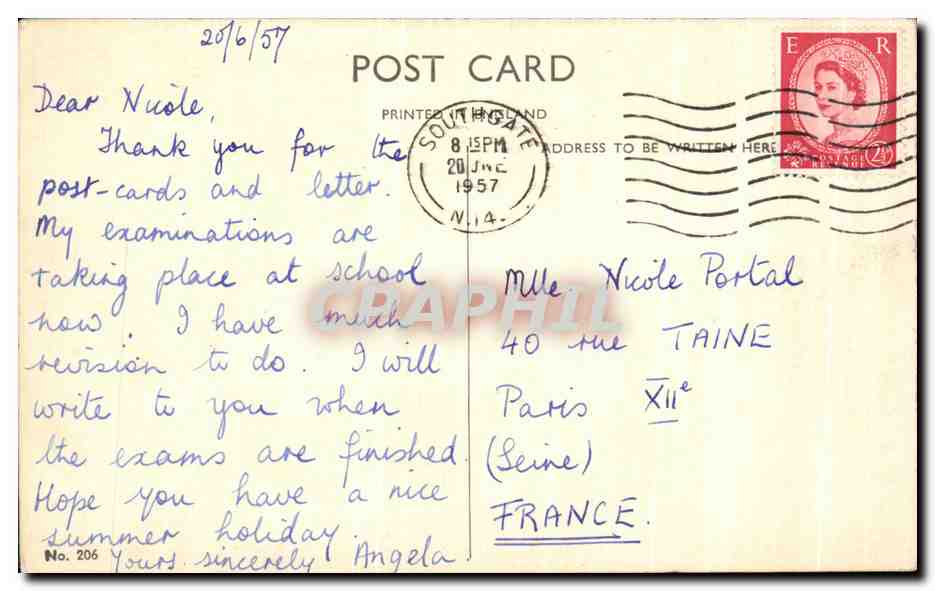 20/6/57
POST CARD
PRINTED IN ENGLAND
ADDRESS TO BE WRITTEN HERE
Dear Nicole,
Thank you for the
post-cards and letter.
My examinations are
taking place at school
now. I have much
revision to do. I will
write to you when
the exams are finished.
Hope you have a nice
summer holiday.
Yours sincerely Angela
No. 206
SOUTHGATE
8 15 PM
20 JNE
1957
N.14.
E R
POSTAGE
REVENUE
2½D
Mlle. Nicole Portal
40 rue TAINE
Paris XIIe
(Seine)
FRANCE.
CRAPHIL